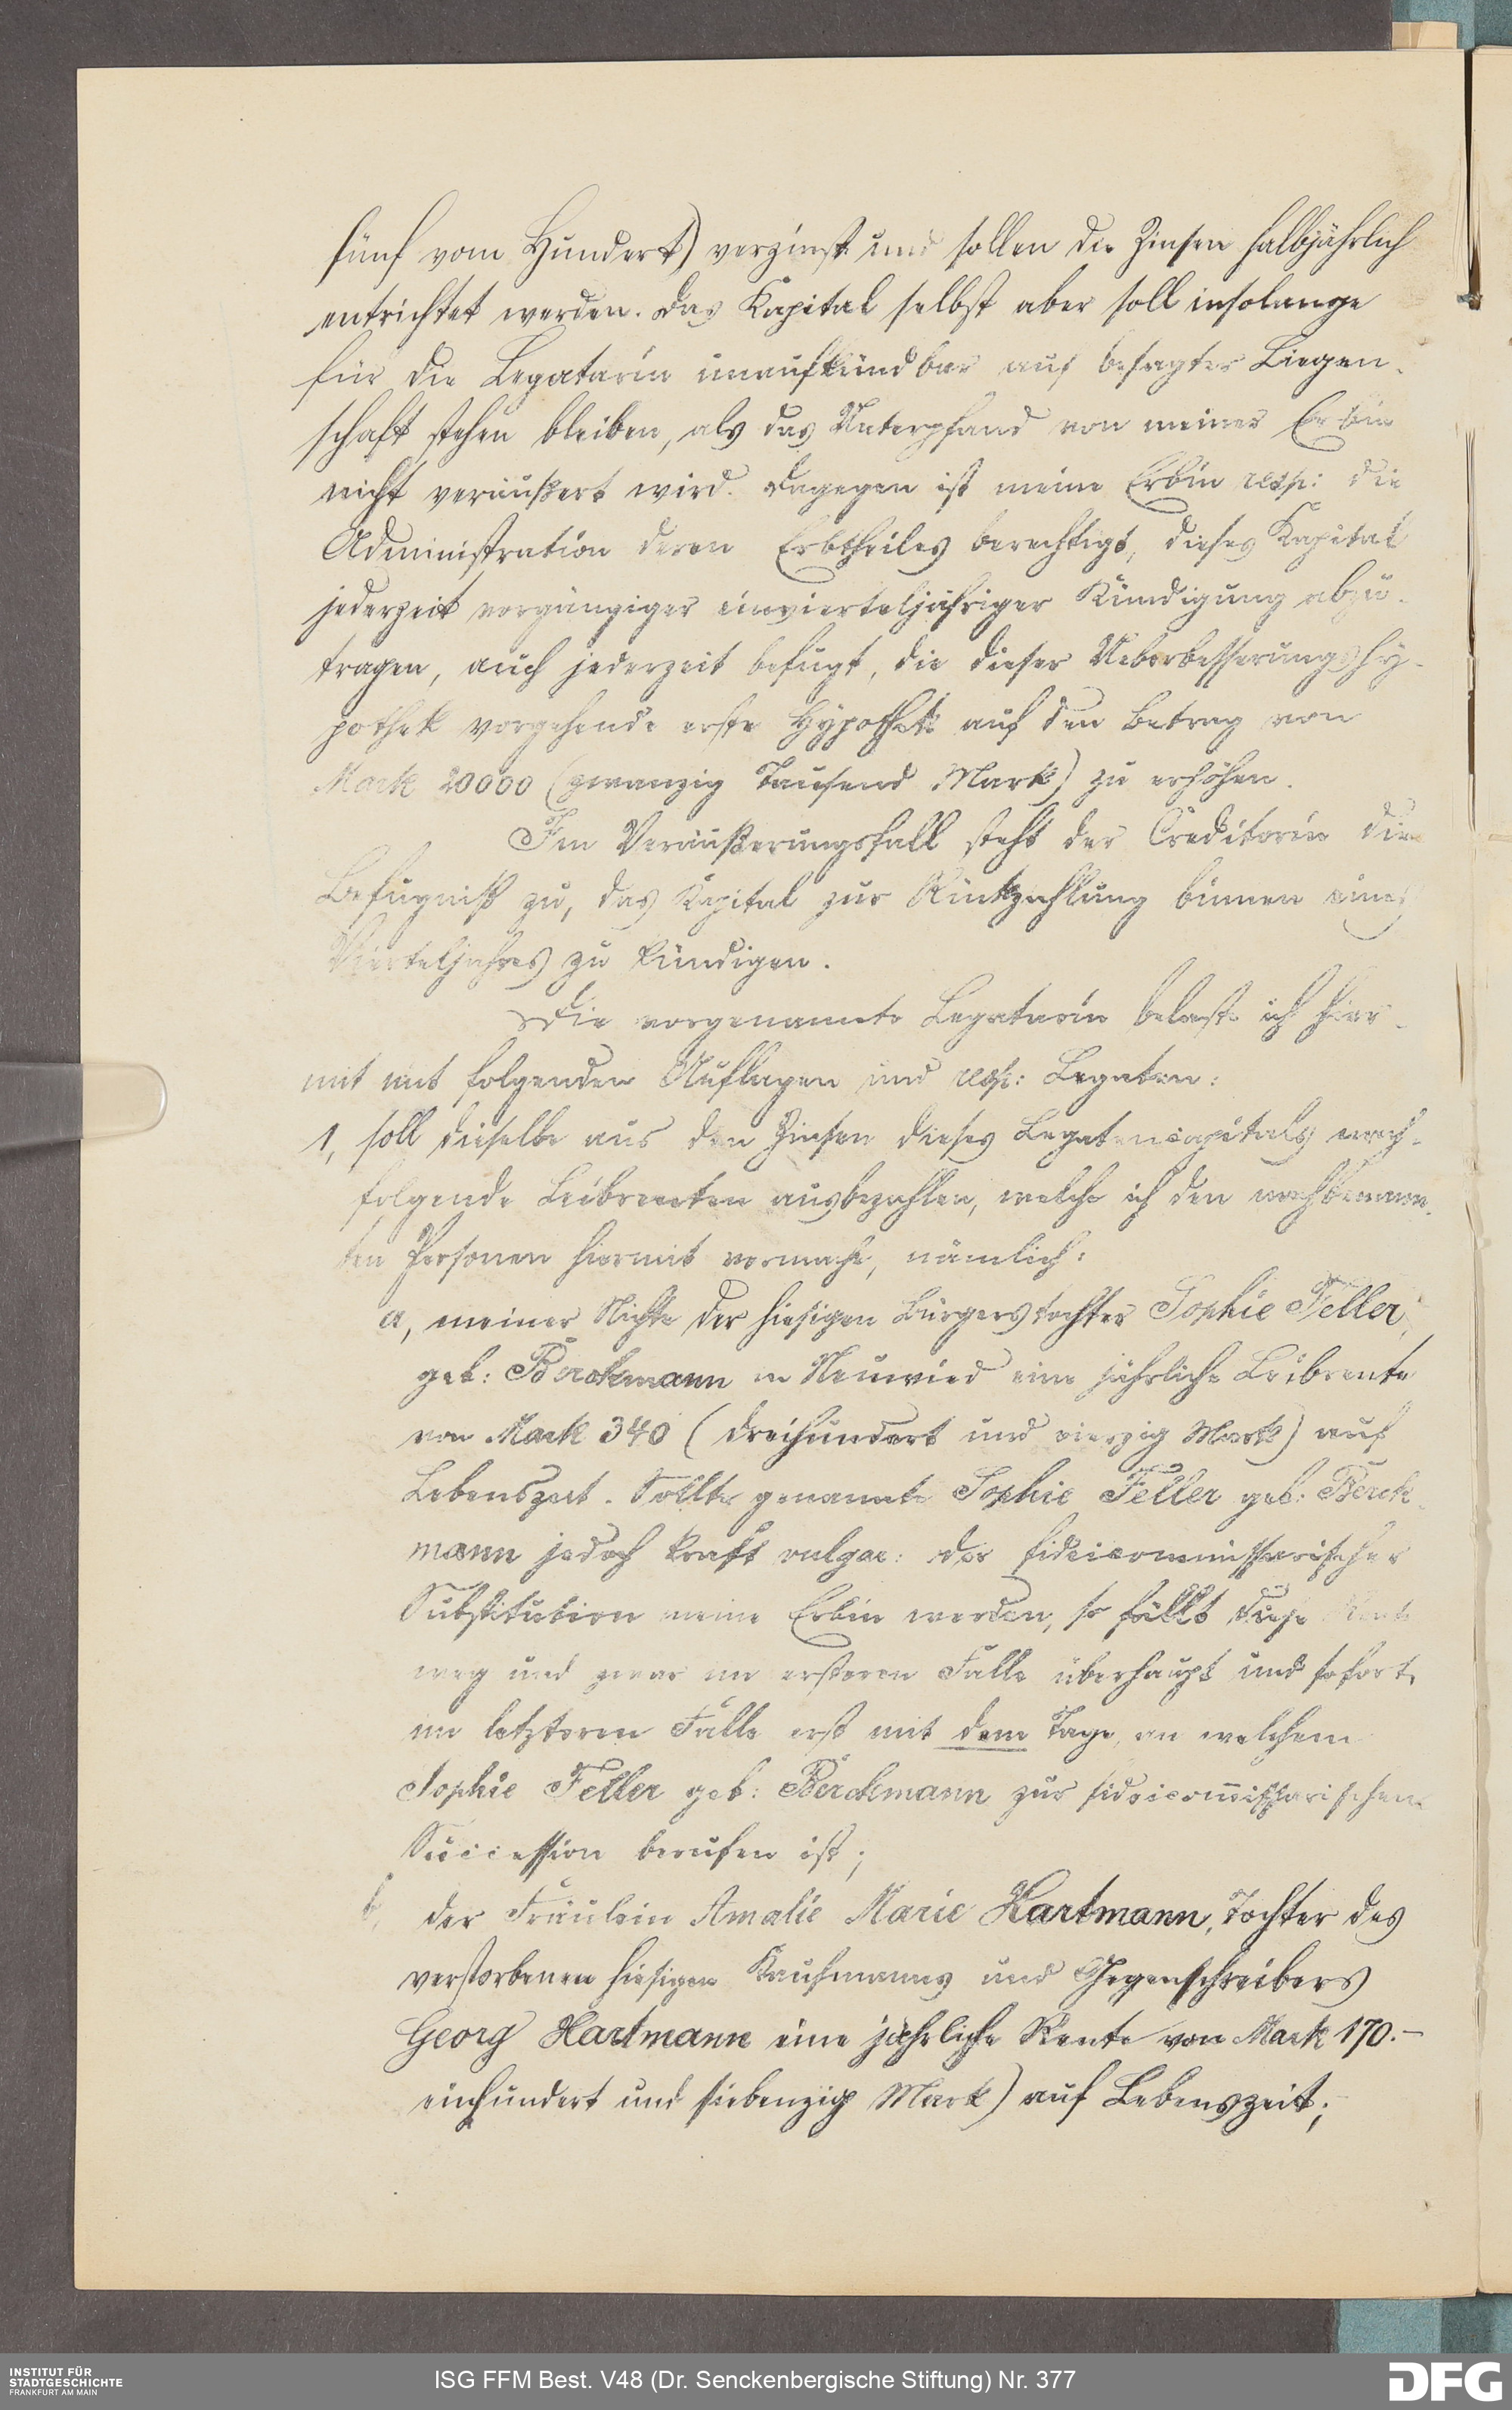 fünf vom Hundert) verzinst und sollen die Zinsen halbjährlich
entrichtet werden. Das Kapital selbst aber soll insolange
für die Legatarin unaufkündbar auf besagter Liegen-
schaft stehen bleiben, als das Unterpfand von meiner Erbin
nicht veräußert wird. Dagegen ist meine Erbin resp: die
Administration deren Erbtheiles berechtigt, dieses Kapital
jederzeit vorgängiger einvierteljähriger Kündigung abzu-
tragen, auch jederzeit befugt, die dieser Ueberbesserungshy-
pothek vorgehende erste Hypothek auf den Betrag von
Mark 20000 (zwanzig Tausend Mark) zu erhöhen.
Im Veräußerungsfall steht der Creditorin die
Befugniß zu, das Kapital zur Rückzahlung binnen eines
Vierteljahres zu kündigen.
Die vorgenannte Legatarin belaste ich hier-
mit mit folgenden Auflagen und resp: Legaten:
1, soll dieselbe aus den Zinsen dieses Legatencapitals nach-
folgende Leibrenten ausbezahlen, welche ich den nachbenann-
ten Personen hiermit vermache, nämlich:
a, meiner Nichte der hiesigen Bürgerstochter Sophie Feller,
geb: Berckmann in Neuwied eine jährliche Leibrente
von Mark 340 (dreihundert und vierzig Mark) auf
Lebenszeit. Sollte genannte Sophie Feller geb: Berck-
mann jedoch kraft vulgar: der fideicommissarischer
Substitution meine Erbin werden, so fällt diese Rente
weg und zwar im ersteren Falle überhaupt und sofort,
im letzteren Falle erst mit dem Tage, an welchem
Sophie Feller geb: Berckmann zur fideicom̄issarischen
Succession berufen ist;
b, der Fräulein Amalie Marie Hartmann, Tochter des
verstorbenen hiesigen Kaufmanns und Gegenschreibers
Georg Hartmann eine jährliche Rente von Mark 170.-
einhundert und siebenzig Mark) auf Lebenszeit;
INSTITUT FÜR
STADTGESCHICHTE
FRANKFURT AM MAIN
ISG FFM Best. V48 (Dr. Senckenbergische Stiftung) Nr. 377
DFG